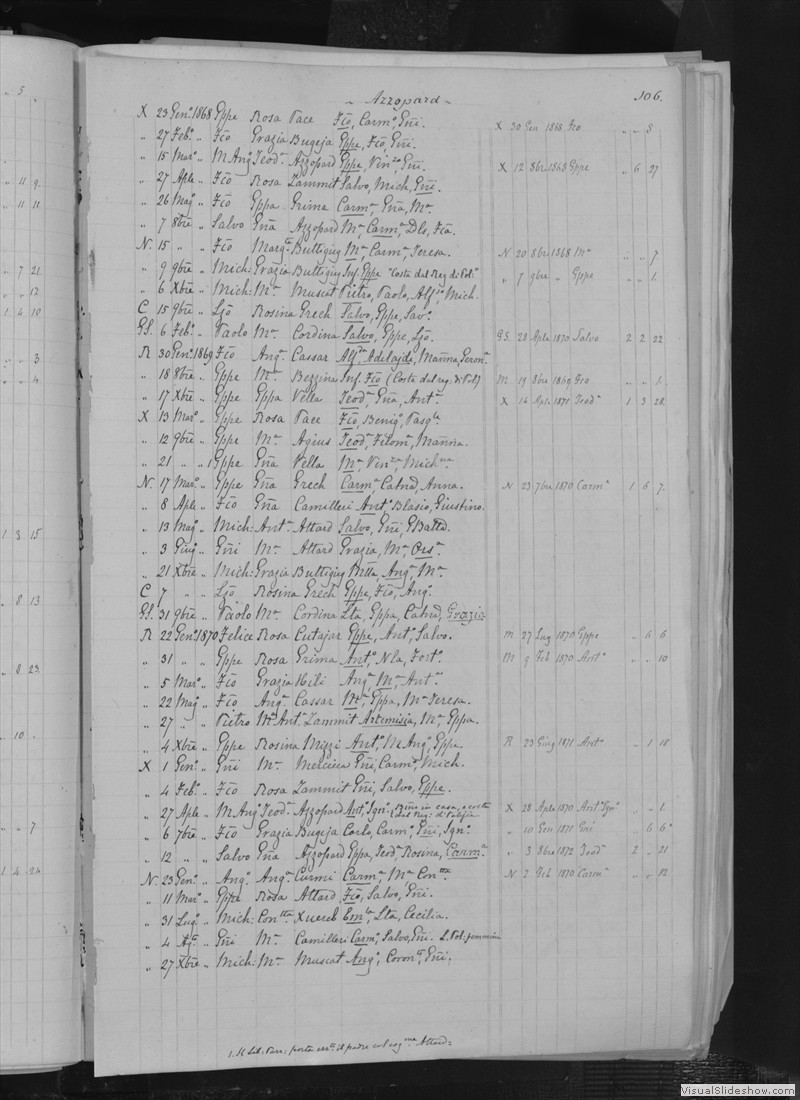 - Azzopard -
106.
X 23 Genº 1868 Gppe Rosa Pace Fcõ, Carmº, Gñi. X 30 Gen 1868 Fco " " 8
" 27 Febº " Fcõ Grazia Bugeja Gppe, Fcõ, Gñi.
" 15 Marº " M. Angº Teodª Azzopard Gppe, Vinzº, Gñi. X 12 8bre 1868 Gppe " 6 27
" 27 Aple " Fcõ Rosa Zammit Salvo, Mich, Gñi.
" 26 Magº " Fcõ Gppa Grima Carmª, Gña, Mª
" 7 8bre " Salvo Gña Azzopard Mª, Carmª, Dls, Fca.
N. 15 " " Fcõ Margta Buttigieg Mª, Carmª, Teresa. N 20 8bre 1868 Mª " " 7
" 9 9bre " Mich: Grazia Buttigieg Inf. Gppe " 7 9bre " Gppe " " 1.
" 6 Xbre " Mich: Mª Muscat Pietro, Paolo, Alfº, Mich.
C 15 9bre " Ljõ Rosina Grech Salvo, Gppe, Savº.
GS. 6 Febº " Paolo Mª Cordina Salvo, Gppe, Ljõ. GS. 28 Aple 1870 Salvo 2 2 22
R 30 Genº 1869 Fcõ Angª Cassar Adelaide, Manna,
" 18 8bre " Gppe Mª Bezzina Inf. Fcõ M 19 8bre 1869 Fco " " 1.
" 17 Xbre " Gppe Gppa Vella Teodª, Gña, Antª. X 14 Aple 1871 Teodª 1 3 28
X 13 Marº " Gppe Rosa Pace Fcõ, Benigº, Pasqle.
" 12 9bre " Gppe Mª Agius Teodª, Filomª, Manna.
" 21 " " 1 Gppe Gña Vella Mª, Vinzª, Michna
N. 17 Marº " Gppe Gña Grech Carmª, Catnd, Anna. N 23 7bre 1870 Carmª 1 6 7.
" 8 Aple " Fcõ Gña Camilleri Antº, Blasio, Giustino.
" 13 Magº " Mich: Antª Attard Salvo, Gñi, GBatta.
" 3 Giugº " Gñi Mª Attard Grazia, Mª, Orsª
" 21 Xbre " Mich: Grazia Buttigieg Angª, Mª
C 7 " " Ljõ Rosina Grech Gppe, Fcõ, Angº.
GS. 31 9bre " Paolo Mª Cordina Lta, Gppa, Catnd, Grazia
R 22 Genº 1870 Felice Rosa Cutajar Gppe, Antº, Salvo. M 27 Lug 1870 Gppe " 6 6
" 31 " " Gppe Rosa Grima Antº, Nla, Fortº. M 9 Feb 1870 Antº " " 10
" 5 Marº " Fcõ Grazia Mili Angª, Mª, Antª.
" 22 Magº " Fcõ Angª Cassar Mª, Gppa, Mª Teresa.
" 27 " " Pietro Mª Antª Zammit Artemisia, Mª, Gppa.
" 4 Xbre " Gppe Rosina Mizzi Antº, M. Angº, Gppe R 23 Giug 1871 Antº " 1 18
X 1 Genº " Gñi Mª Mercieca Gñi, Carmº, Mich.
" 4 Febº " Fcõ Rosa Zammit Gñi, Salvo, Gppe.
" 27 Aple " M. Angº Teodª Azzopard Antº, Ignº X 28 Aple 1870 Antº Ignº " " 1.
" 6 7bre " Fcõ Grazia Bugeja Carlo, Carmº, Gñi, Ignº. " 10 Gen 1871 Gñi " 6 6
" 12 " " Salvo Gña Azzopard Gppa, Teodª, Rosina, Carmª " 3 8bre 1872 Teodª 2 " 21
N. 23 Genº " Angº Angª Curmi Carmª, Mª Contta N 2 Feb 1870 Carmª " " 12
" 11 Marº " Gppe Rosa Attard, Fcõ, Salvo, Gñi.
" 31 Lugº " Mich: Contta Xuereb Emla, Lta, Cecilia.
" 4 Agto " Gñi Mª Camilleri Carmº, Salvo, Gñi.
" 27 Xbre " Mich: Mª Muscat Angº, Coronª, Gñi.
1. Il Lib: Parr: porta il padre col cogme Attard
VisualSlideshow.com